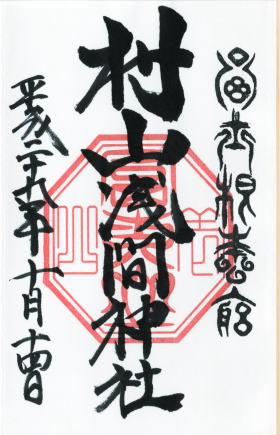 富士根本宮
村山浅間神社
平成二十九年十月十四日